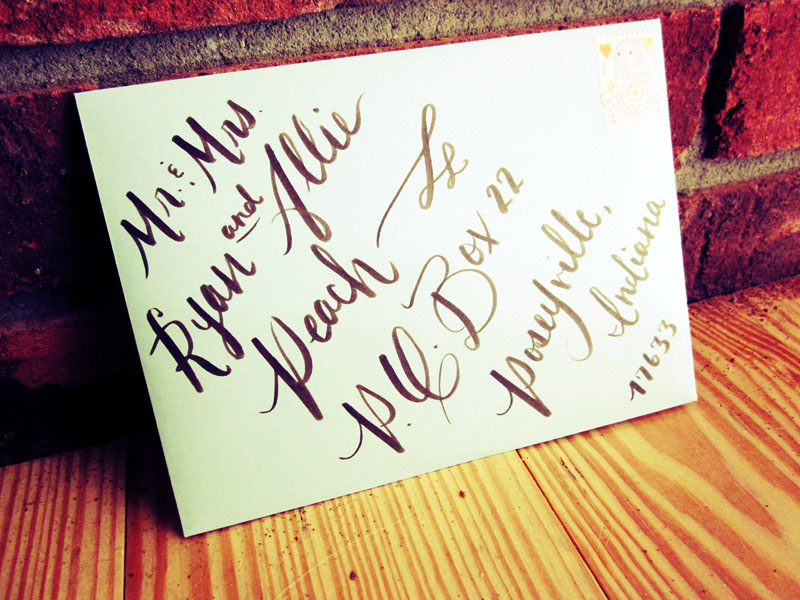 Mr. & Mrs.
Ryan and Allie
Peach
P.O. Box 22
Poseyville,
Indiana
47633